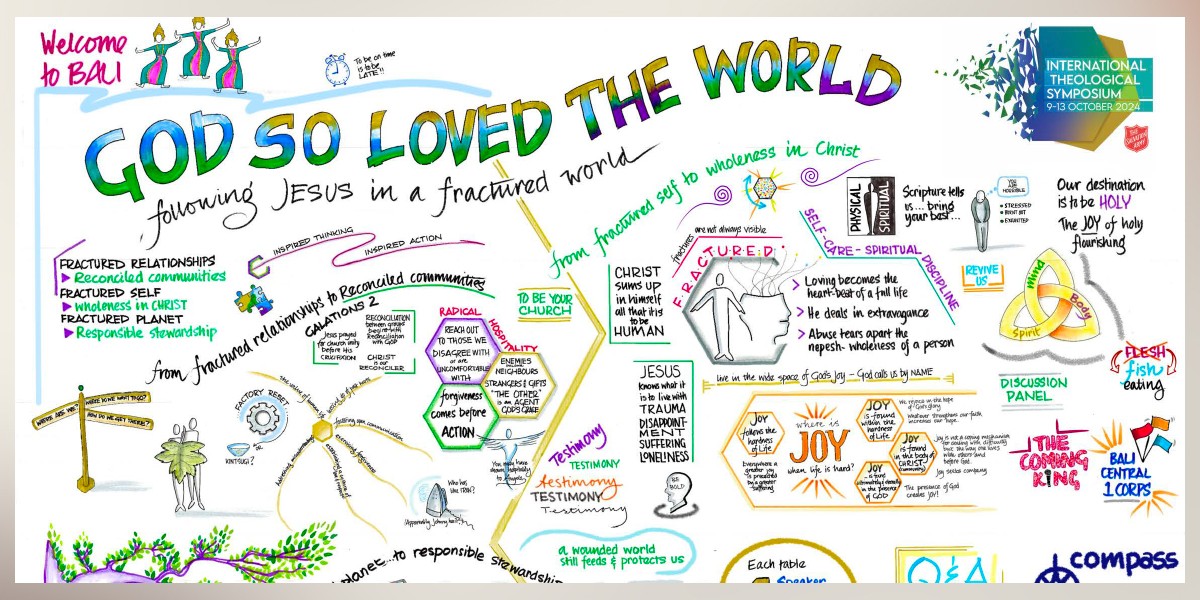 Welcome
to BALI
To be on time
is to be
LATE!!
GOD SO LOVED THE WORLD
following JESUS in a fractured world
INTERNATIONAL
THEOLOGICAL
SYMPOSIUM
9-13 OCTOBER 2024
THE
SALVATION
ARMY
FRACTURED RELATIONSHIPS
Reconciled communities
FRACTURED SELF
Wholeness in CHRIST
FRACTURED PLANET
Responsible stewardship
INSPIRED THINKING
INSPIRED ACTION
from fractured relationships to Reconciled communities
GALATIONS 2
Jesus prayed
for church unity
before His
CRUCIFIXION
RECONCILIATION
between groups
begins with
Reconciliation
with GOD
CHRIST
is our
RECONCILER
WHERE ARE WE?
WHERE DO WE WANT TO GO?
HOW DO WE GET THERE?
FACTORY RESET
OR
KINTSUGI?
RADICAL
HOSPITALITY
REACH OUT
TO THOSE WE
DISAGREE WITH
or are
UNCOMFORTABLE
WITH
ENEMIES
NEIGHBOURS
STRANGERS & GIFTS
"THE OTHER"
is an AGENT
of GOD'S GRACE
forgiveness
comes before
ACTION
TO BE YOUR
CHURCH
You may have
shown hospitality
to Angels
Who has
the TRBK?
Testimony
TESTIMONY
Testimony
TESTIMONY
Testimony
from fractured self to wholeness in Christ
fractures are not always visible
FRACTURED
CHRIST
sums up
in himself
all that it is
to be
HUMAN
PHYSICAL
SPIRITUAL
Scripture tells
us... bring
your best...
YOU ARE
HORRIBLE
STRESSED
BURNT OUT
EXHAUSTED
Our destination
is to be HOLY
The JOY of holy
flourishing
SELF-CARE - SPIRITUAL DISCIPLINE
REVIVE
US
Loving becomes the
heart-beat of a full life
He deals in extravagance
Abuse tears apart the
nepesh- wholeness of a person
Mind
Body
Spirit
FLESH
fish
eating
live in the wide space of God's Joy - God calls us by NAME
JESUS
knows what it
is to live with
TRAUMA
DISAPPOINT-
MENT
SUFFERING
LONELINESS
BE
HOLD
JOY
follows the
hardness
of Life
Everywhere a
greater joy
is preceded
by a greater
suffering
where is
JOY
when life is hard?
JOY
is found
within the
hardness
of Life
JOY
is found
in the body of
CHRIST
JOY
is found
ultimately & eternally
in the presence
of GOD
We rejoice in the hope
of God's glory
whatever strengthens our faith
increases our hope.
Joy is not a coping mechanism
for dealing with difficulty
but the way one lives
with others and
before God.
Joy seeks company
The presence of God
creates joy!
DISCUSSION
PANEL
THE
COMING
KING
BALI
CENTRAL
1 CORPS
planet...to responsible stewardship
a wounded world
still feeds & protects us
Each table
Speaker
Q&A
compass